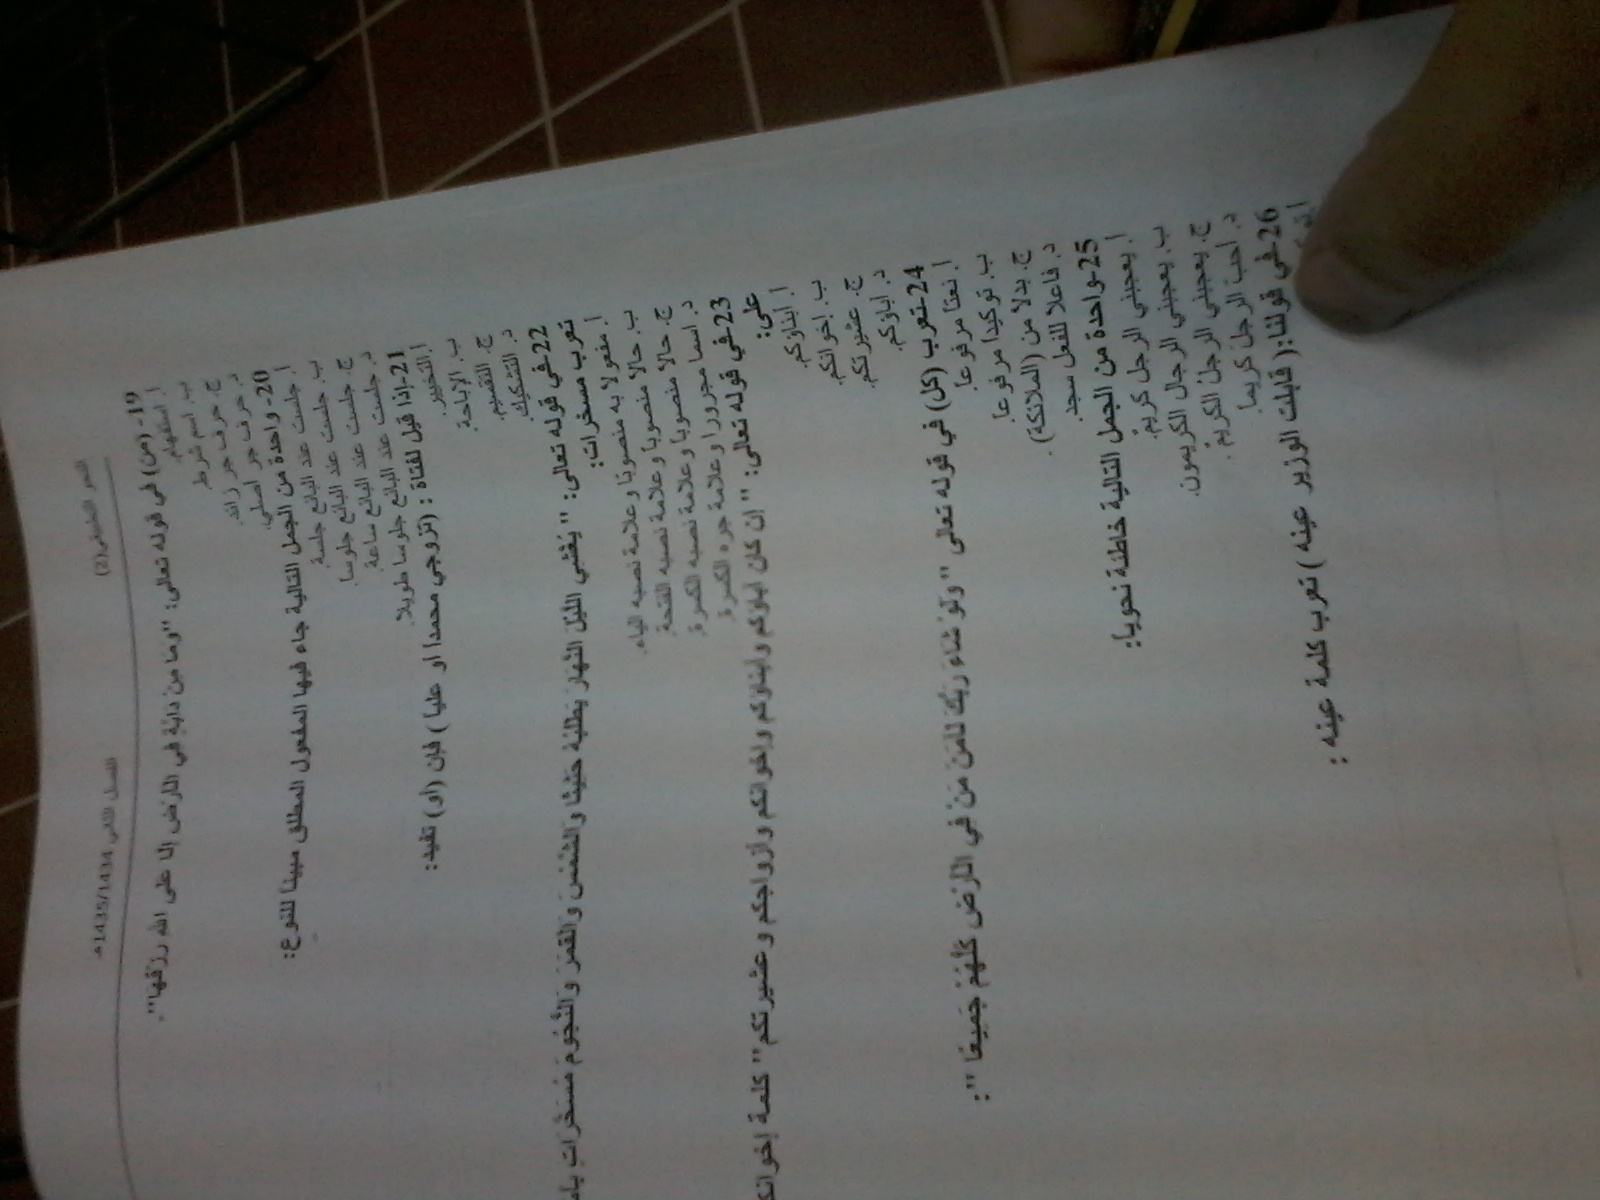 النحو التطبيقي(2) الفصل الثاني 1435/1434هـ
19- (من) في قوله تعالى: "وما من دابة في الأرض إلا على الله رزقها".
أ. استفهام.
ب. اسم شرط.
ج. حرف جر زائد.
د. حرف جر أصلي.
20- واحدة من الجمل التالية جاء فيها المفعول المطلق مبينا للنوع:
أ. جلست عند البائع جلسة.
ب. جلست عند البائع جلوسا.
ج. جلست عند البائع ساعة.
د. جلست عند البائع جلوسا طويلا.
21-إذا قيل لفتاة : (تزوجي محمدا او عليا ) فإن (أو) تفيد:
أ. التخيير.
ب. الإباحة.
ج. التقسيم.
د. التشكيك.
22-في قوله تعالى: "يُغْشي الليْلَ النَّهارَ يَطْلبُهُ حَثيثًا وَالشَّمْسَ وَالقَمَرَ وَالنُّجُومَ مُسَخَّرَات
تعرب مسخرات:
أ. مفعولا به منصوبا وعلامة نصبه الياء.
ب. حالا منصوبا وعلامة نصبه الفتحة.
ج. حالا منصوبا وعلامة نصبه الكسرة.
د. اسما مجرورا وعلامة جره الكسرة.
23-في قوله تعالى: "إن كان اباؤكم وابناؤكم وإخوانكم وأزواجكم وعشيرتكم" كلمة
على:
أ. ابناؤكم.
ب. إخوانكم.
ج. عشيرتكم.
د. اباؤكم.
24-تعرب (كل) في قوله تعالى "وَلَوْ شَاءَ رَبُّكَ لَآمَنَ مَنْ فِي الأَرْضِ كُلُّهُمْ جَمِيعًا ":
أ. نعتا مرفوعا.
ب. توكيدا مرفوعا.
ج. بدلا من (الملائكة).
د. فاعلا للفعل سجد.
25-واحدة من الجمل التالية خاطئة نحويا:
أ. يعجبني الرجل كريم.
ب. يعجبني الرجال الكريمون.
ج. يعجبني الرجلُ الكريمُ.
د. احب الرجل كريما.
26-في قولنا:( قابلت الوزير عينه ) تعرب كلمة عينه :